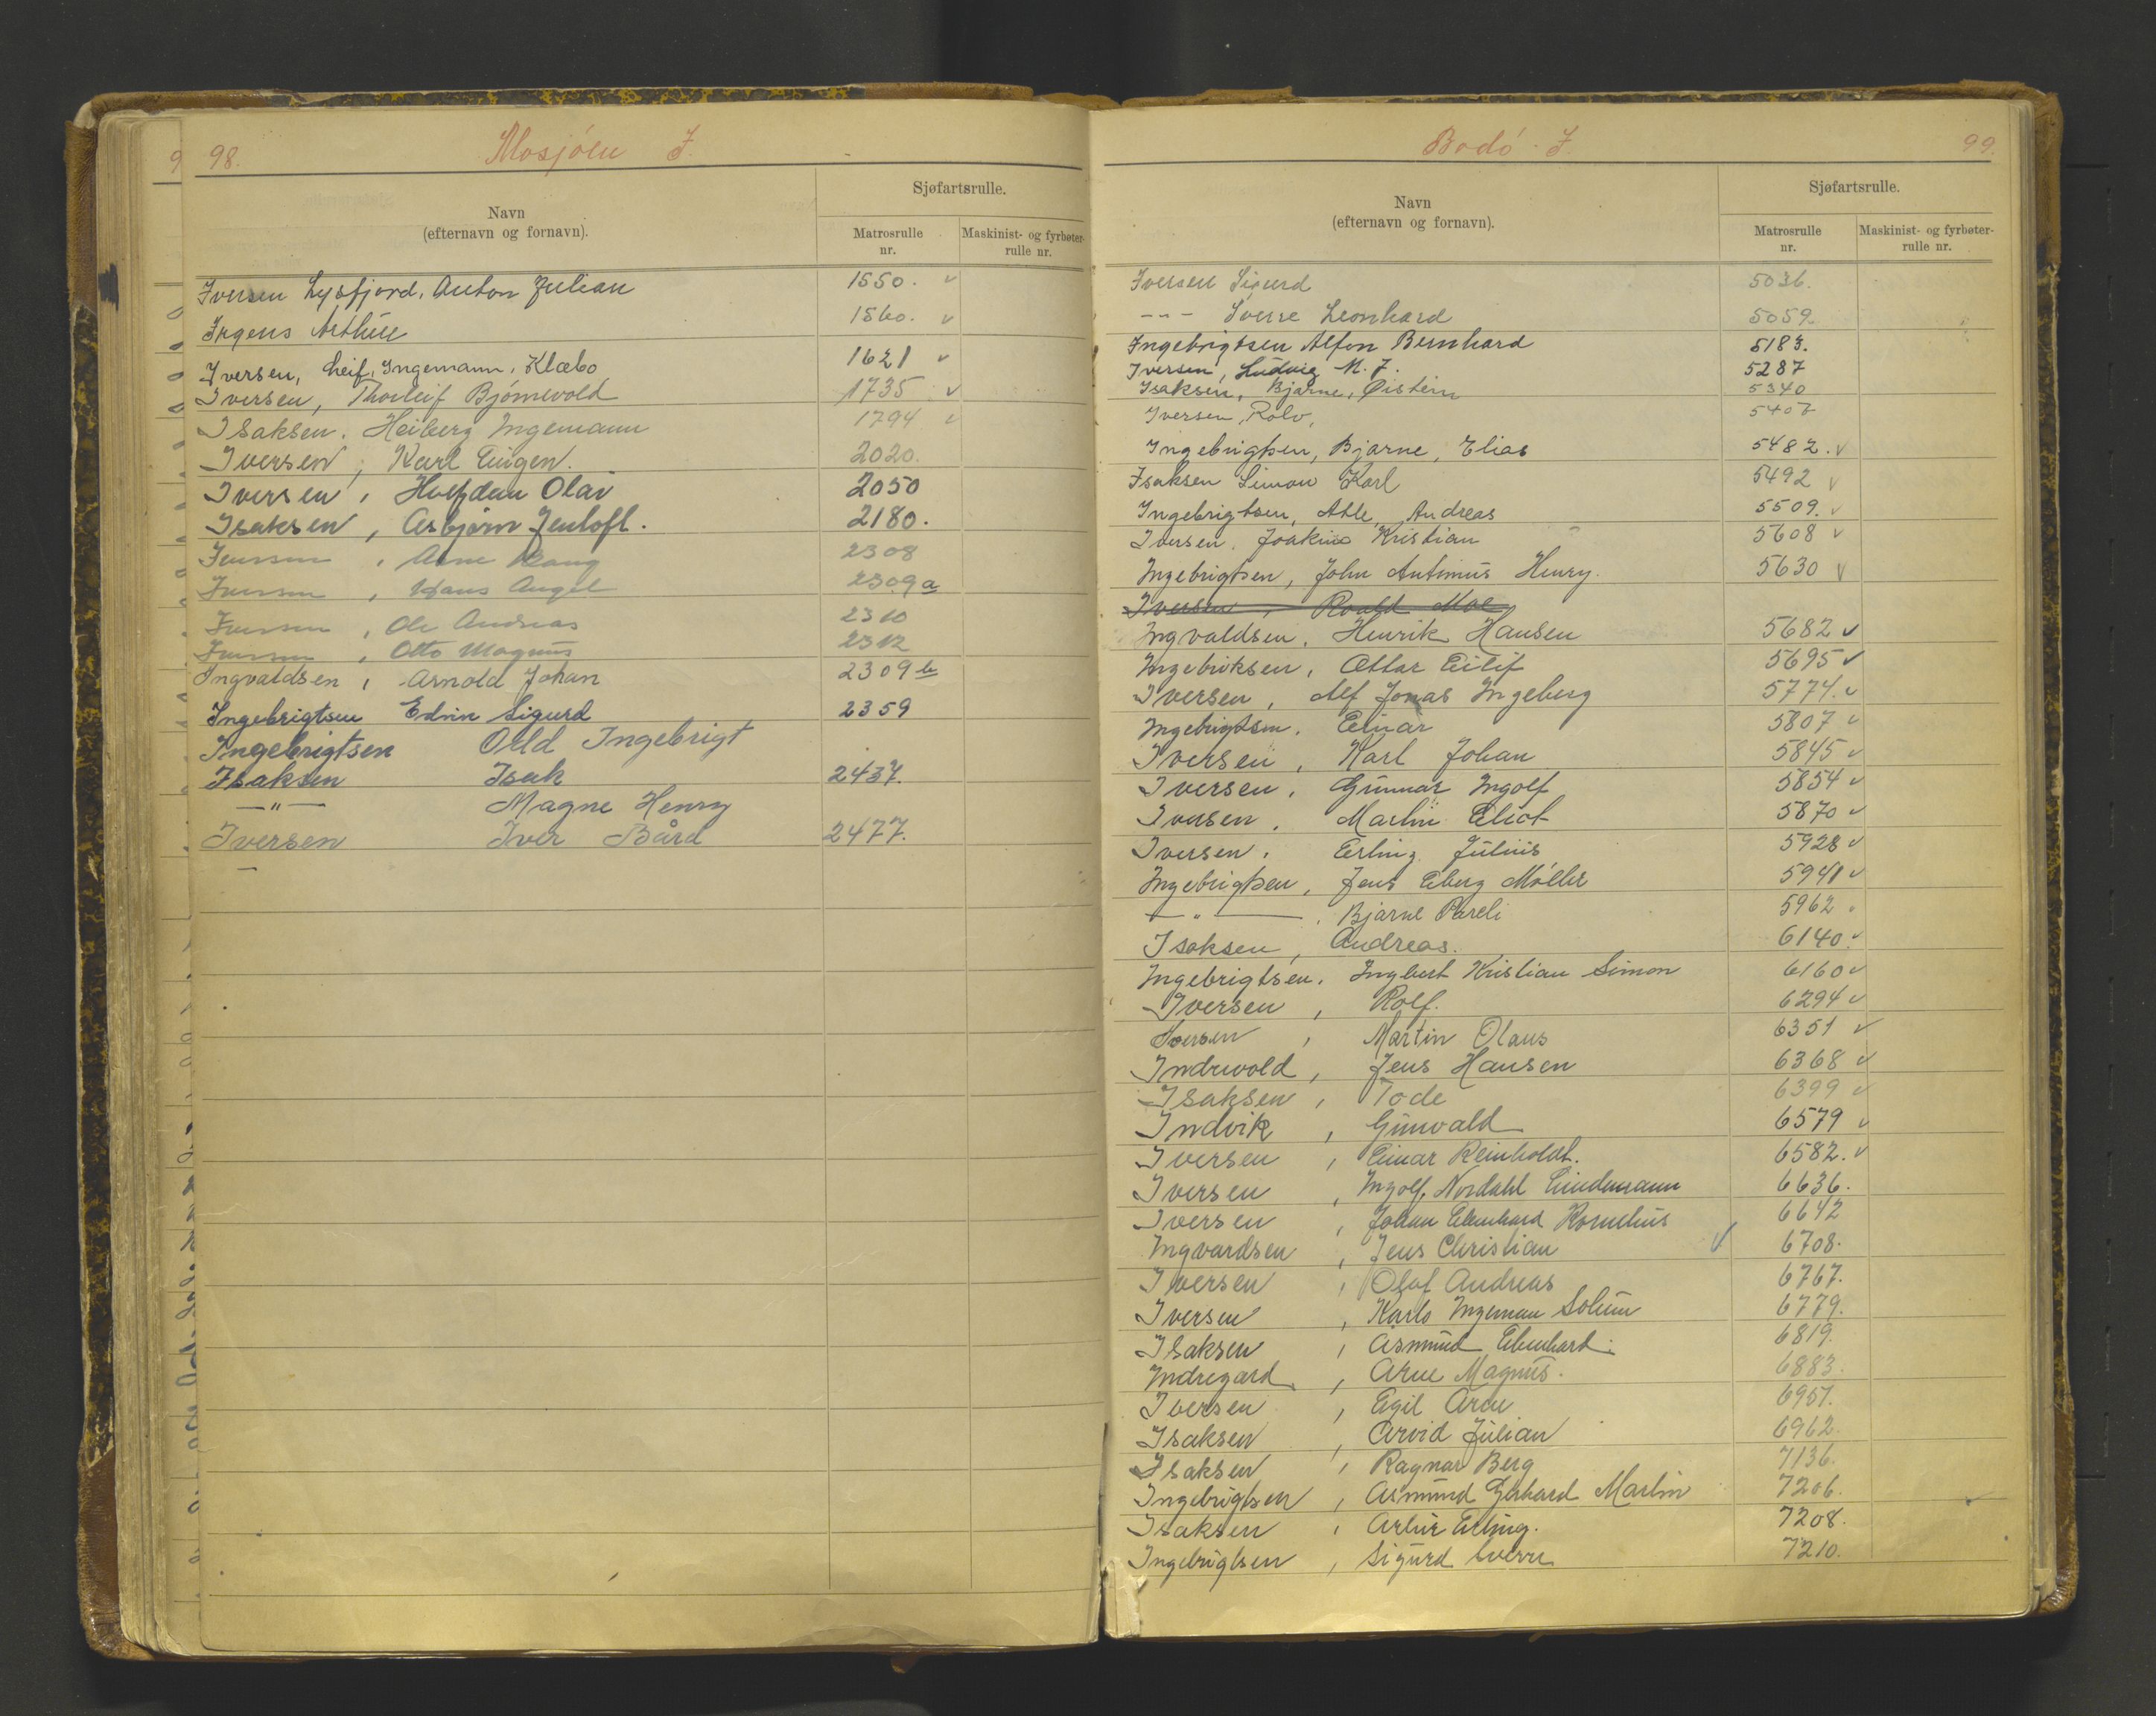 98. Mosjöen I.
Navn
(efternavn og fornavn).
Sjøfartsrulle.
Matrosrulle
nr.
Maskinist- og fyrbøter-
rulle nr.
Iversen Lysfjord, Anton Julian 1550. ✓
Irgens Arthur 1560. ✓
Iversen, Leif, Ingemann, Klæbo 1621 ✓
Iversen, Thorleif Bjørnevold 1735 ✓
Isaksen, Heiberg Ingemann 1794 ✓
Iversen, Karl Eugen. 2020.
Iversen, Halfdan Olai 2050
Isaksen, Asbjørn Jentoft. 2180.
Iverssen, Arne Bang 2308
Iverssen, Hans Angel 2309a
Iverssen, Ole Andreas 2310
Iverssen, Otto Magnus 2312
Ingvaldsen, Arnold Johan 2309 b
Ingebrigtsen Edvin Sigurd 2359
Ingebrigtsen Odd Ingebrigt
Isaksen Isak 2437.
—"— Magne Henry
Iversen Iver Bård 2477.
Bodö. I. 99.
Navn
(efternavn og fornavn).
Sjøfartsrulle.
Matrosrulle
nr.
Maskinist- og fyrbøter-
rulle nr.
Iversen Sigurd 5036.
-"- Sverre Leonhard 5059
Ingebrigtsen Alfon Bernhard 5183.
Iversen, Ludvig M. J. 5287
Isaksen, Bjarne, Øistein 5340
Iversen, Rolv, 5407
Ingebrigtsen, Bjarne, Elias 5482. ✓
Isaksen Simon Karl 5492 ✓
Ingebrigtsen, Atle, Andreas 5509. ✓
Iversen, Joakim Kristian 5608 ✓
Ingebrigtsen, John Antinius Henry. 5630 ✓
Iversen, Roald Moe
Ingvaldsen, Henrik Hansen 5682 ✓
Ingebriksen, Ottar Eilif 5695 ✓
Iversen, Alf Jonas Ingeberg 5774. ✓
Ingebrigtsen, Einar 5807 ✓
Iversen, Karl Johan 5845 ✓
Iversen, Gunnar Ingolf 5854 ✓
Iversen, Martin Eliot 5870 ✓
Iversen, Erling Julius 5928 ✓
Ingebrigtsen, Jens Eberg Möller 5941 ✓
—"—, Bjarne Pareli 5962
Isaksen, Andreas. 6140. ✓
Ingebrigtsen, Ingbert Kristian Simon 6160 ✓
Iversen, Rolf. 6294 ✓
Iversen, Martin Olaus 6351 ✓
Indrevold, Jens Hansen 6368 ✓
Isaksen, Tode 6399 ✓
Indvik, Gunvald 6579 ✓
Iversen, Einar Reinholdt. 6582. ✓
Iversen, Ingolf Nordahl Lindemann 6636.
Iversen, Johan Edenhard Kornelius 6642
Ingvardsen, Jens Christian ✓ 6708.
Iversen, Olaf Andreas 6767.
Iversen, Karlo Ingeman Solum 6779.
Isaksen, Asmund Edenhard. 6819.
Indregard, Arne Magnus. 6883.
Iversen, Egil Arne 6951.
Isaksen, Arvid Julian 6962.
Isaksen, Ragnar Berg 7136.
Ingebrigtsen, Asmund Gerhard Martin 7206.
Isaksen, Artur Erling. 7208.
Ingebrigtsen, Sigurd Sverre 7210.